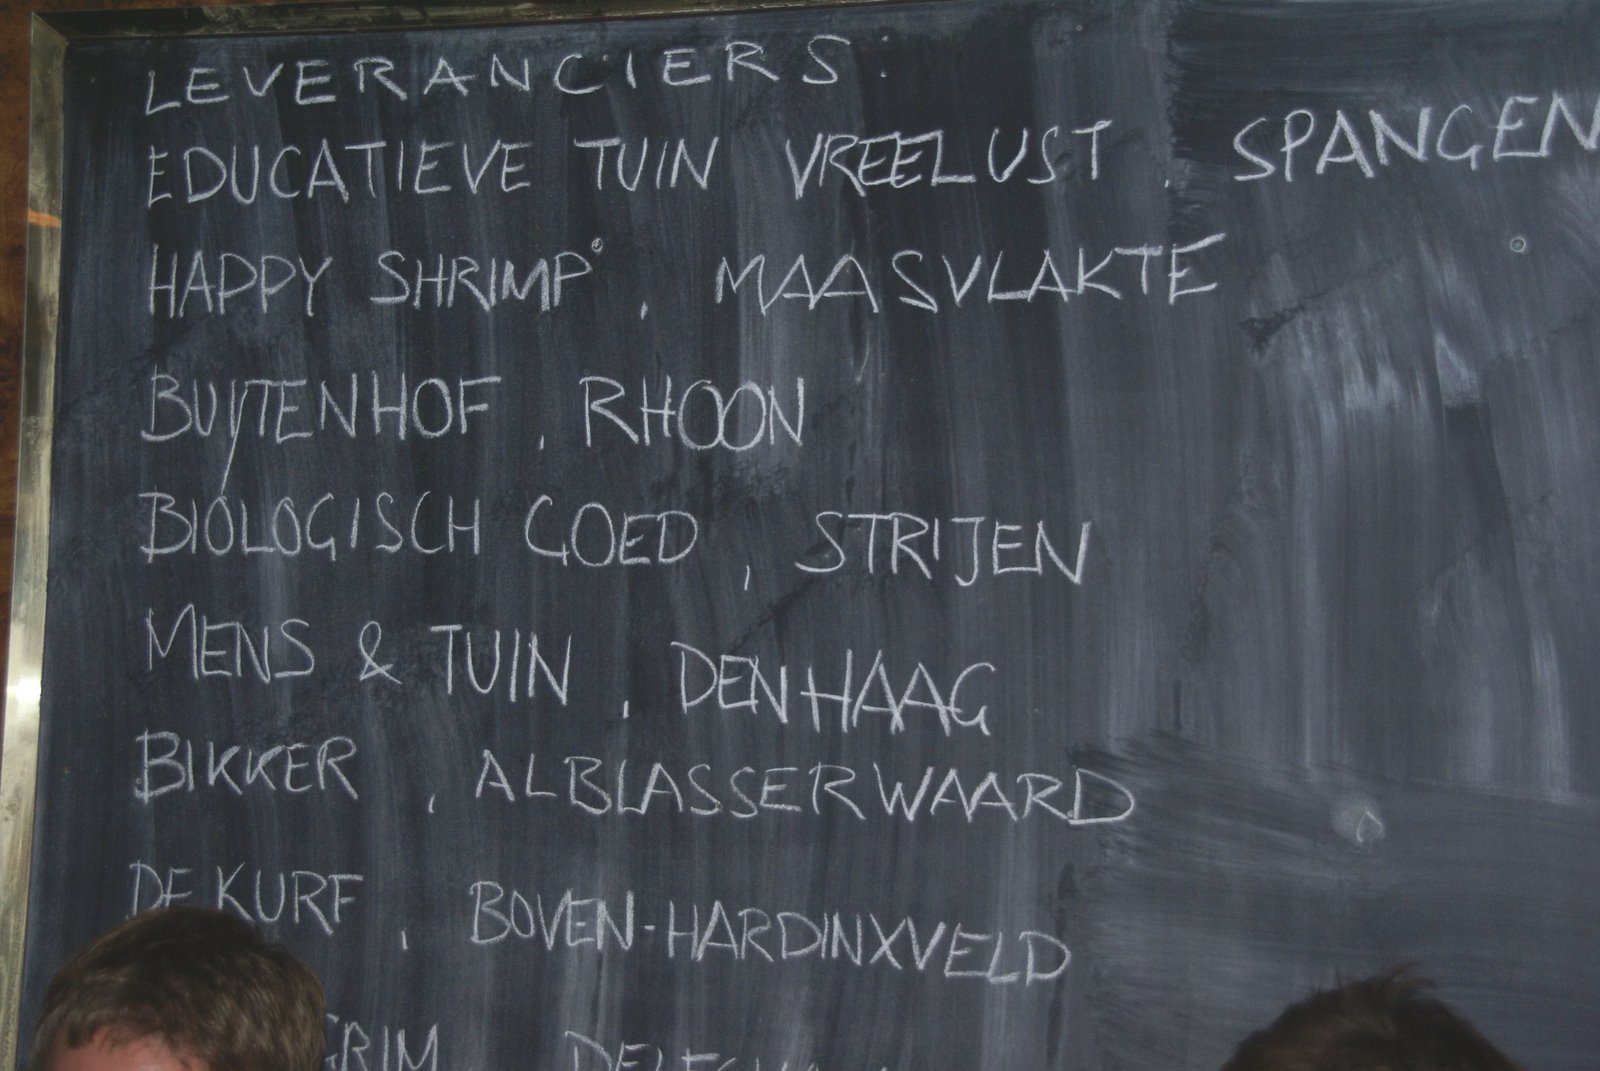 LEVERANCIERS:
EDUCATIEVE TUIN VREELUST, SPANGEN
HAPPY SHRIMP, MAASVLAKTE
BUYTENHOF, RHOON
BIOLOGISCH GOED, STRIJEN
MENS & TUIN, DEN HAAG
BIKKER, ALBLASSERWAARD
DE KURF, BOVEN-HARDINXVELD